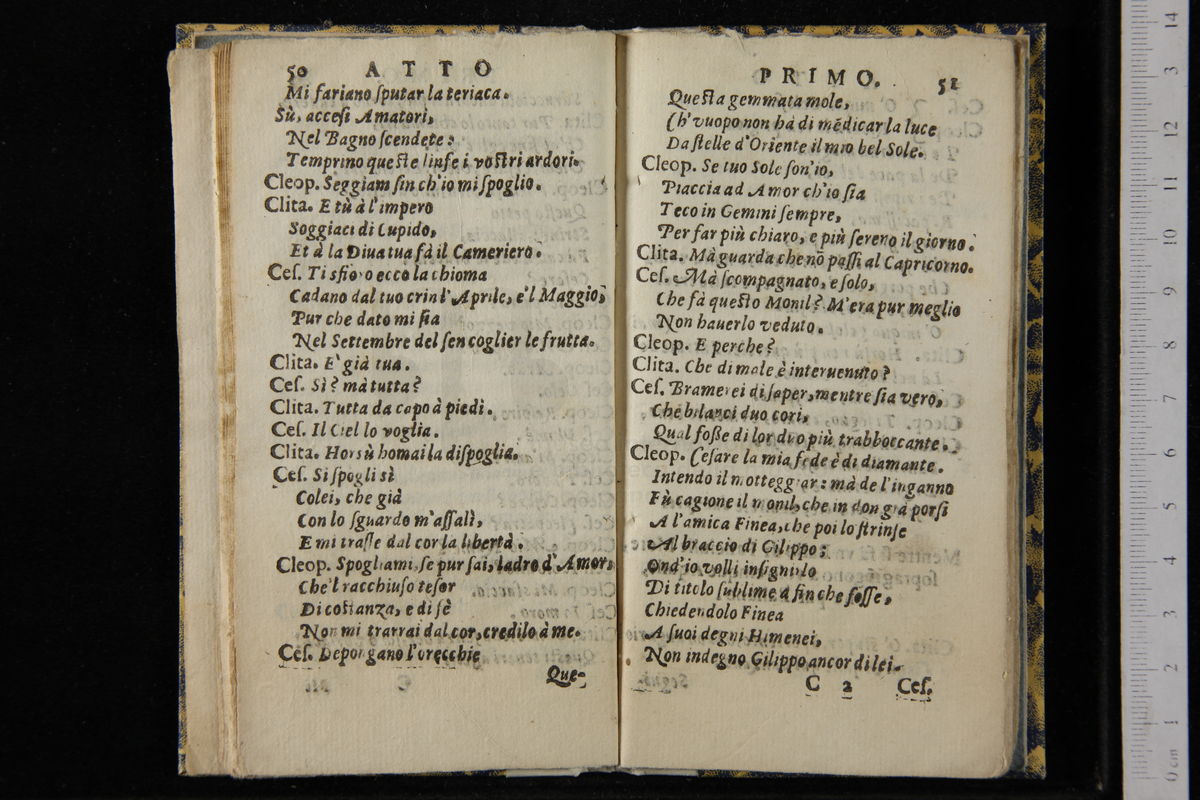 50 ATTO
Mi fariano ſputar la teriaca.
Sù, acceſi Amatori,
Nel Bagno ſcendete:
Temprino queſte linfe i voſtri ardori.
Cleop. Seggiam ſin ch'io mi ſpoglio.
Clita. E tù à l'impero
Soggiaci di Cupido,
Et à la Diua tua fà il Cameriero.
Ceſ. Ti sfioro ecco la chioma
Cadano dal tuo crin l'Aprile, e'l Maggio;
Pur che dato mi ſia
Nel Settembre del ſen coglier le frutta.
Clita. E' già tua.
Ceſ. Sì? mà tutta?
Clita. Tutta da capo à piedi.
Ceſ. Il Ciel lo voglia.
Clita. Horsù homai la diſpoglia.
Ceſ. Si ſpogli sì
Colei, che già
Con lo ſguardo m'aſſalì,
E mi traſſe dal cor la libertà.
Cleop. Spogliami, ſe pur ſai, ladro d'Amor,
Che'l racchiuſo teſor
Di coſtanza, e di fè
Non mi trarrai dal cor, credilo à me.
Ceſ. Depongano l'orecchie
Que-
PRIMO. 51
Queſta gemmata mole,
Ch'vuopo non hà di mẽdicar la luce
Da ſtelle d'Oriente il mio bel Sole.
Cleop. Se tuo Sole ſon'io,
Piaccia ad Amor ch'io ſia
Teco in Gemini ſempre,
Per far più chiaro, e più ſereno il giorno.
Clita. Mà guarda che nõ paſſi al Capricorno.
Ceſ. Mà ſcompagnato, e ſolo,
Che fà queſto Monil? M'era pur meglio
Non hauerlo veduto.
Cleop. E perche?
Clita. Che di male è interuenuto?
Ceſ. Bramerei di ſaper, mentre ſia vero,
Che bilanci duo cori,
Qual foſſe di lor duo più trabboccante.
Cleop. Ceſare la mia fede è di diamante.
Intendo il motteggiar: mà de l'inganno
Fù cagione il monil, che in don già porſi
A l'amica Finea, che poi lo ſtrinſe
Al braccio di Gilippo;
Ond'io volli inſignirlo
Di titolo ſublime à fin che foſſe,
Chiedendolo Finea
A ſuoi degni Himenei,
Non indegno Gilippo ancor di lei.
C 2 Ceſ.